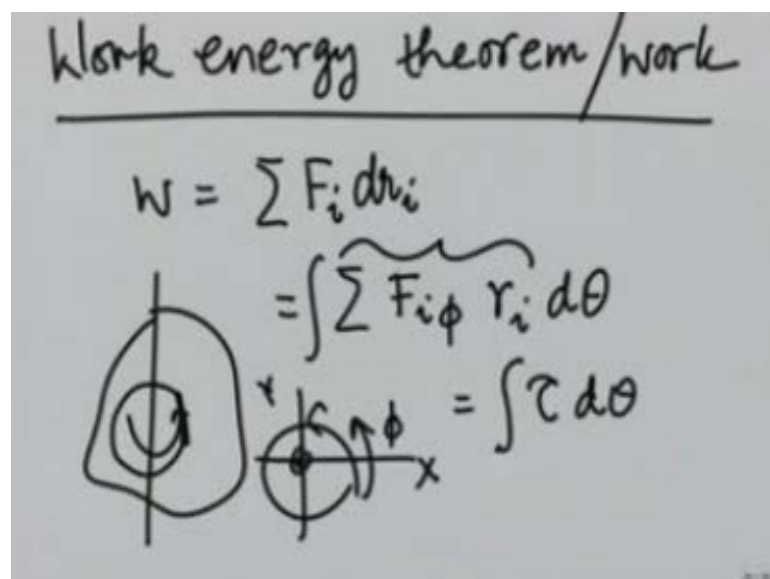 Work energy theorem/work
W = ∑ F_i dr_i
= ∫ ∑ F_iϕ r_i dθ
= ∫ τ dθ
Y
ϕ
X